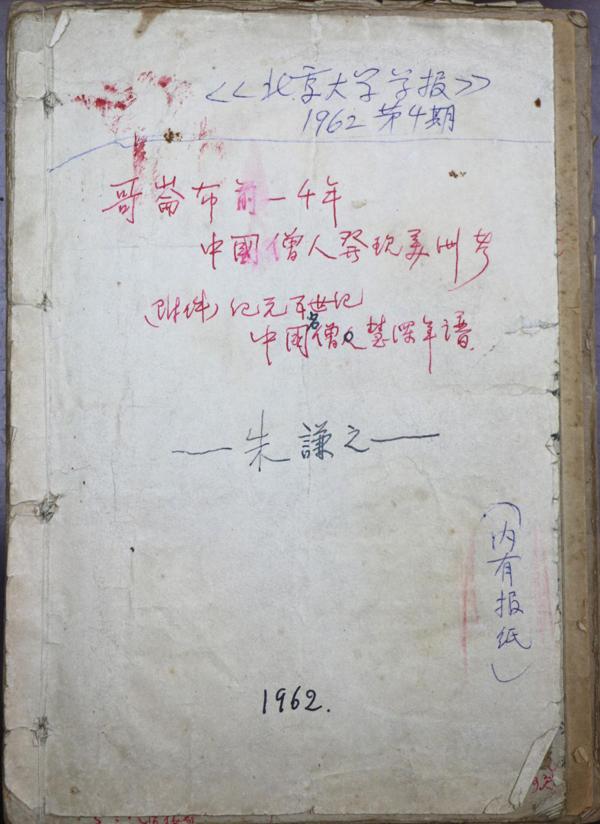 <<北京大学学报>>
1962 第4期
哥崙布前一千年
中國僧人發現美洲考
(附件)紀元五世紀
中國名僧慧深年谱
——朱謙之——
(内有报纸)
1962.